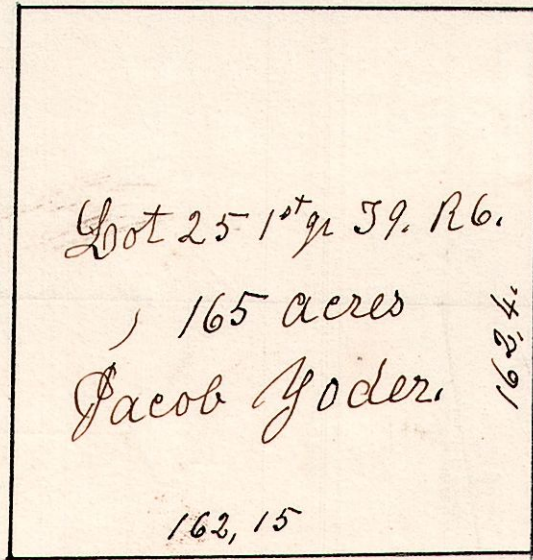 Lot 25 1st qr T9. R6.
, 165 acres
Jacob Yoder.
162,4.
162,15